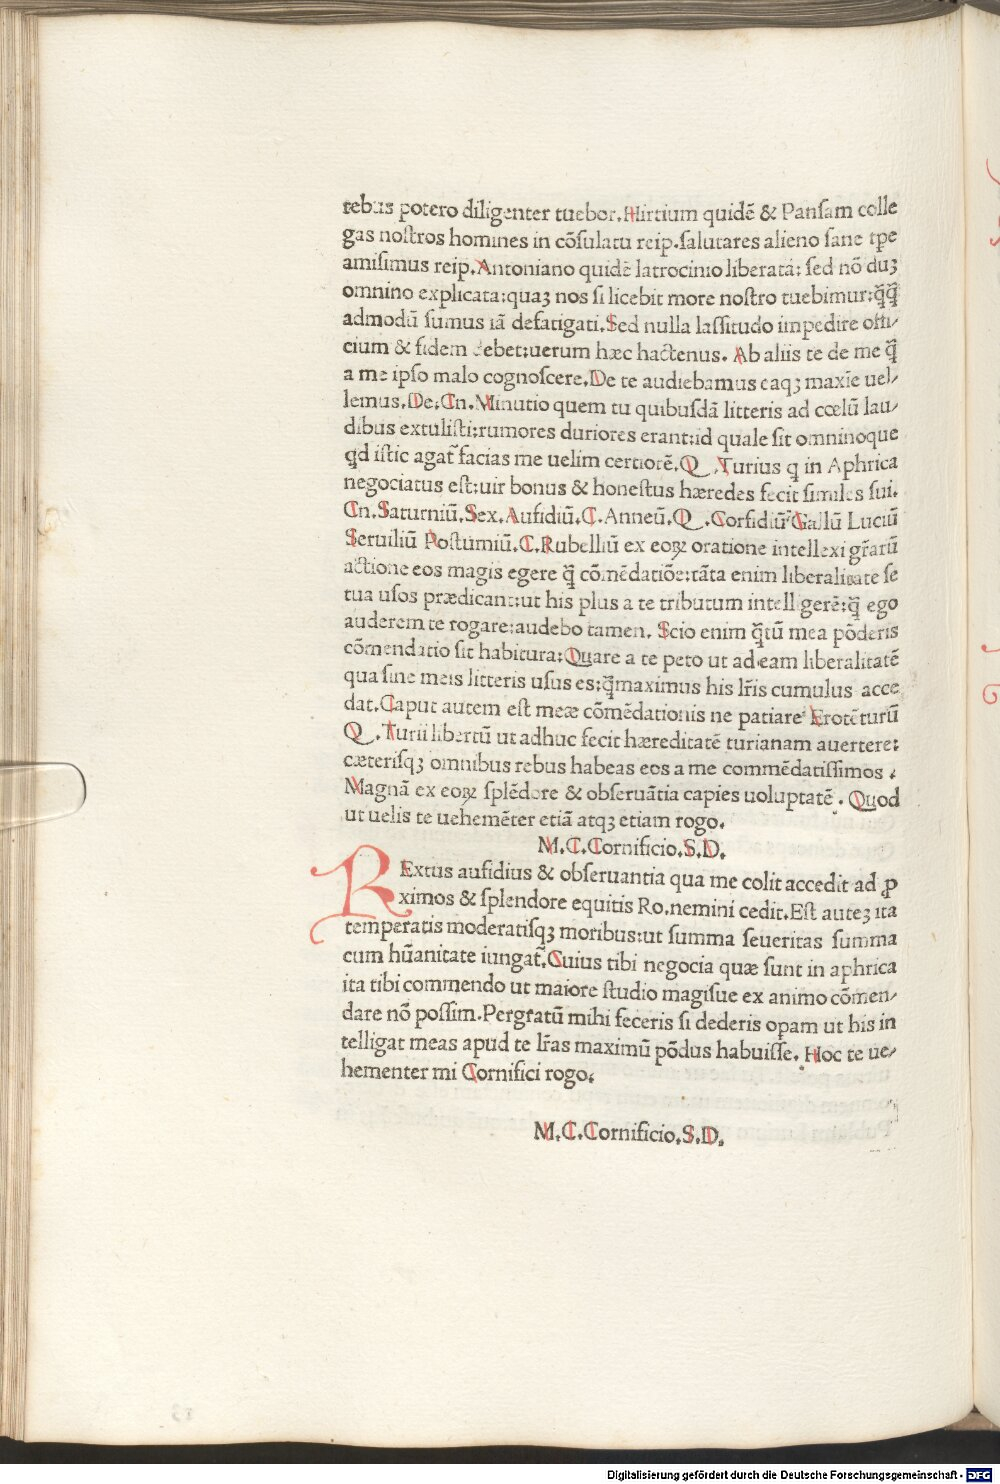 rebus potero diligenter tuebor. Hirtium quidē & Pansam colle
gas nostros homines in cōsulatu reip. salutares alieno sane tpe
amisimus reip. Antoniano quidē latrocinio liberata: sed nō duꝫ
omnino explicata: quaꝫ nos si licebit more nostro tuebimur: q̄q̄
admodū sumus iā defatigati. Sed nulla lassitudo impedire offi/
cium & fidem debet: uerum hæc hactenus. Ab aliis te de me q̄
a me ipso malo cognoscere. De te audiebamus eaqꝫ maxīe uel/
lemus. De. Cn. Minutio quem tu quibusdā litteris ad cœlū lau/
dibus extulisti: rumores duriores erant: id quale sit omninoque
qd istic agat᷑ facias me uelim certiorē. Q. Turius q in Aphrica
negociatus est: uir bonus & honestus hæredes fecit similes sui.
Cn. Saturniū. Sex. Aufidiū. C. Anneū. Q. Corfidiū Gallū Luciū
Seruiliū Postumiū. C. Rubelliū ex eoꝝ oratione intellexi gr̄arū
actione eos magis egere q̄ cōmēdatiōe: tāta enim liberalitate se
tua usos prædicant: ut his plus a te tributum intelligerē: q̄ ego
auderem te rogare: audebo tamen. Scio enim q̄tū mea pōderis
cōmendatio sit habitura: Quare a te peto ut ad eam liberalitatē
qua sine meis litteris usus es: q̄maximus his lr̄is cumulus acce
dat. Caput autem est meæ cōmēdationis ne patiare Erotē turiū
Q. Turii libertū ut adhuc fecit hæreditatē turianam auertere:
cæterisqꝫ omnibus rebus habeas eos a me commēdatissimos.
Magnā ex eoꝝ splēdore & obseruātia capies uoluptatē. Quod
ut uelis te uehemēter etiā atqꝫ etiam rogo.
M. C. Cornificio. S. D.
RExtus aufidius & obseruantia qua me colit accedit ad ꝓ
ximos & splendore equitis Ro. nemini cedit. Est auteꝫ ita
temperatis moderatisqꝫ moribus: ut summa seueritas summa
cum hūanitate iungat᷑. Cuius tibi negocia quæ sunt in aphrica
ita tibi commendo ut maiore studio magisue ex animo cōmen/
dare nō possim. Pergratū mihi feceris si dederis opam ut his in
telligat meas apud te lr̄as maximū pōdus habuisse. Hoc te ue/
hementer mi Cornifici rogo.
M. C. Cornificio. S. D.
Digitalisierung gefördert durch die Deutsche Forschungsgemeinschaft - DFG